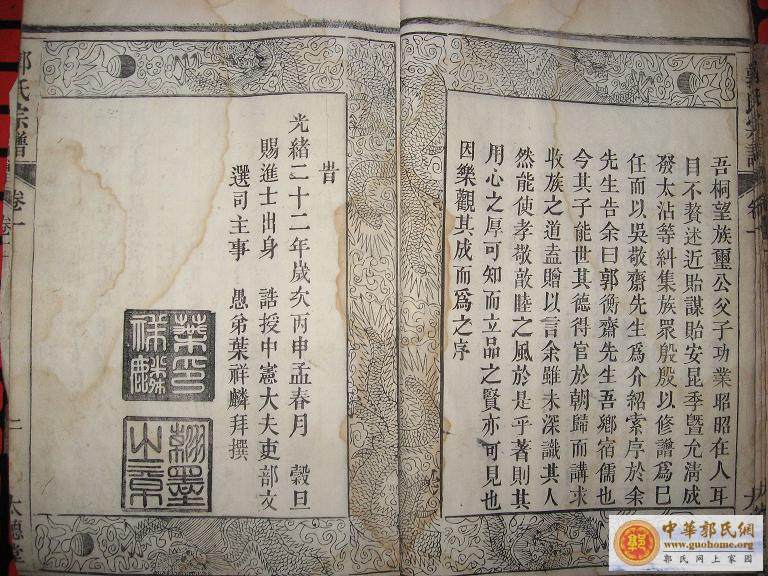 吾桐望族璽公父子功業昭昭在人耳
目不贅述近貽謀貽安昆季暨允清成
發太沾等糾集族眾殷殷以修譜爲已
任而以吳敬齋先生爲介紹索序於余
先生告余曰郭衡齋先生吾鄉宿儒也
今其子能世其德得官於朝歸而講求
收族之道盍贈以言余雖未深識其人
然能使孝敬敦睦之風於是乎著則其
用心之厚可知而立品之賢亦可見也
因樂觀其成而爲之序
旹
光緒二十二年歲次丙申孟春月　穀旦
賜進士出身　誥授中憲大夫吏部文
選司主事　愚弟葉祥麟拜撰
葉印祥麟
翊墨之章
郭氏宗譜
卷一
二
大德堂
中華郭氏網
www.guohome.org
郭氏网上家园